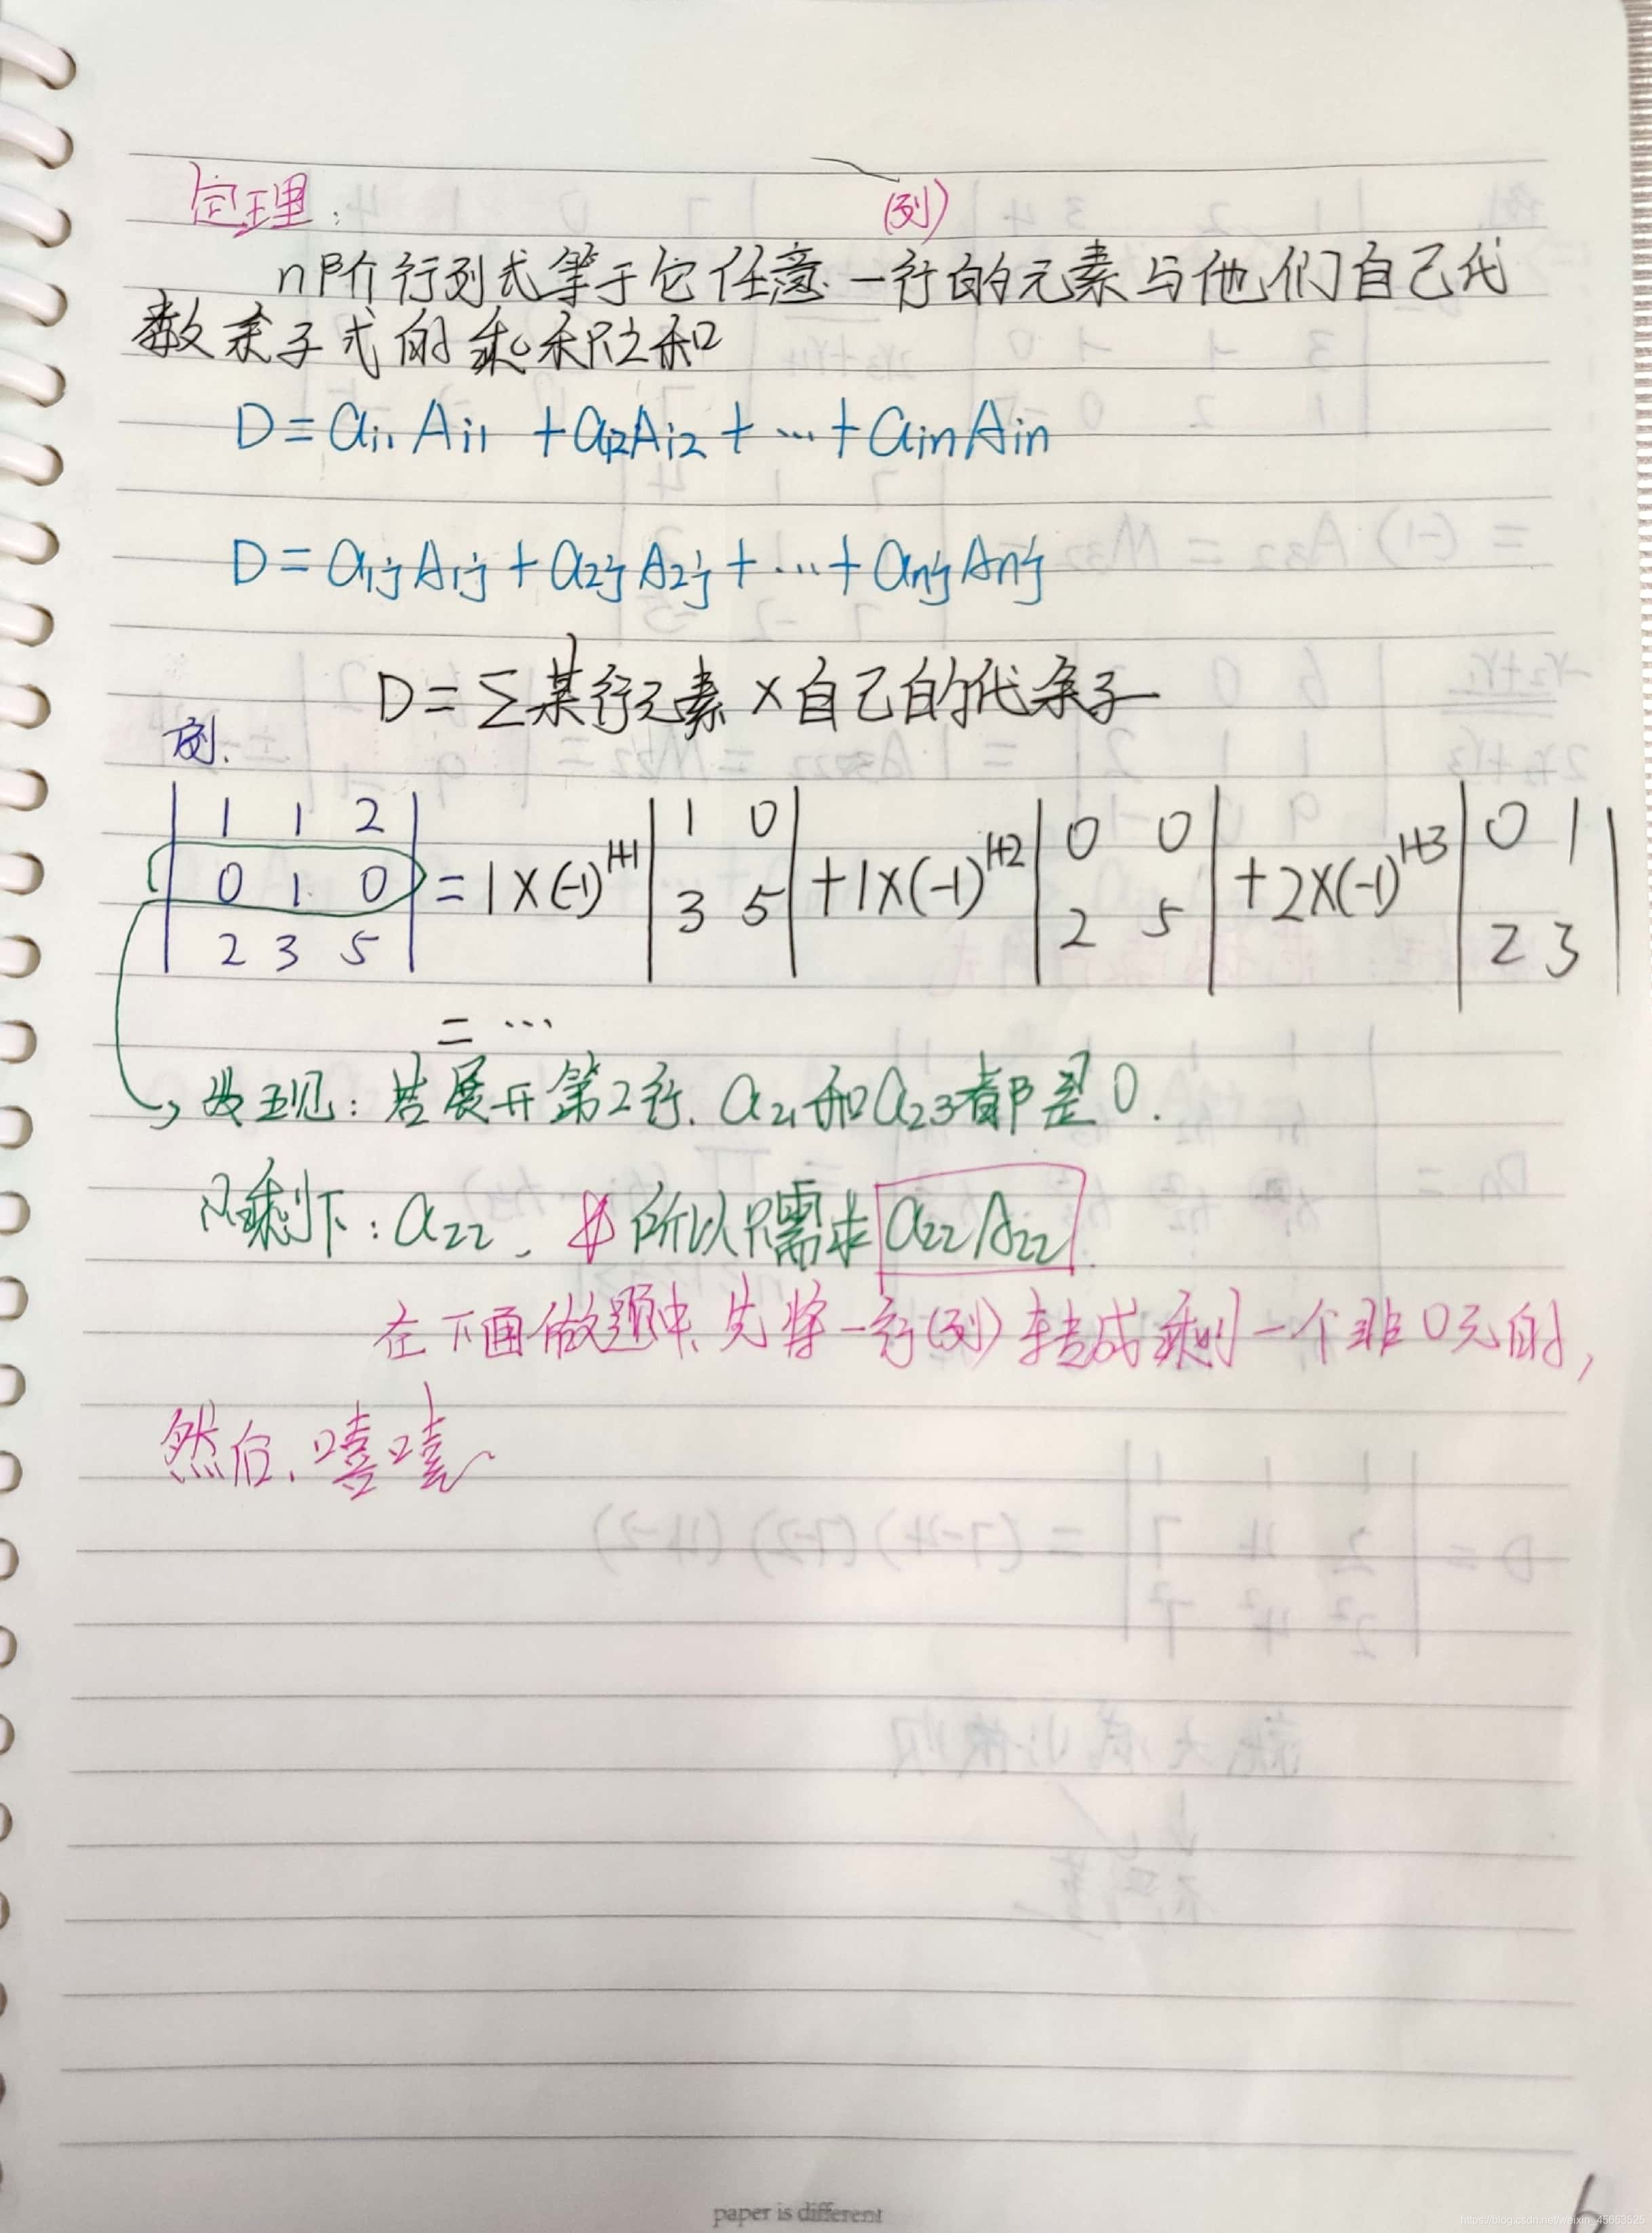 定理：
(列)
n阶行列式等于它任意一行的元素与他们自己代
数余子式的乘积之和
D=ai1Ai1+ai2Ai2+…+ainAin
D=a1jA1j+a2jA2j+…+anjAnj
D=∑某行元素×自己的代余子
例.
|1 1 2; 0 1 0; 2 3 5|=1×(-1)^1+1|1 0; 3 5|+1×(-1)^1+2|0 0; 2 5|+2×(-1)^1+3|0 1; 2 3|
=…
发现：若展开第2行.a21和a23都是0.
只剩下：a22、所以只需求a22A22
在下面做题中、先将一行(列)转成剩一个非0元的，
然后、嘻嘻
paper is different
6
https://blog.csdn.net/weixin_45663525